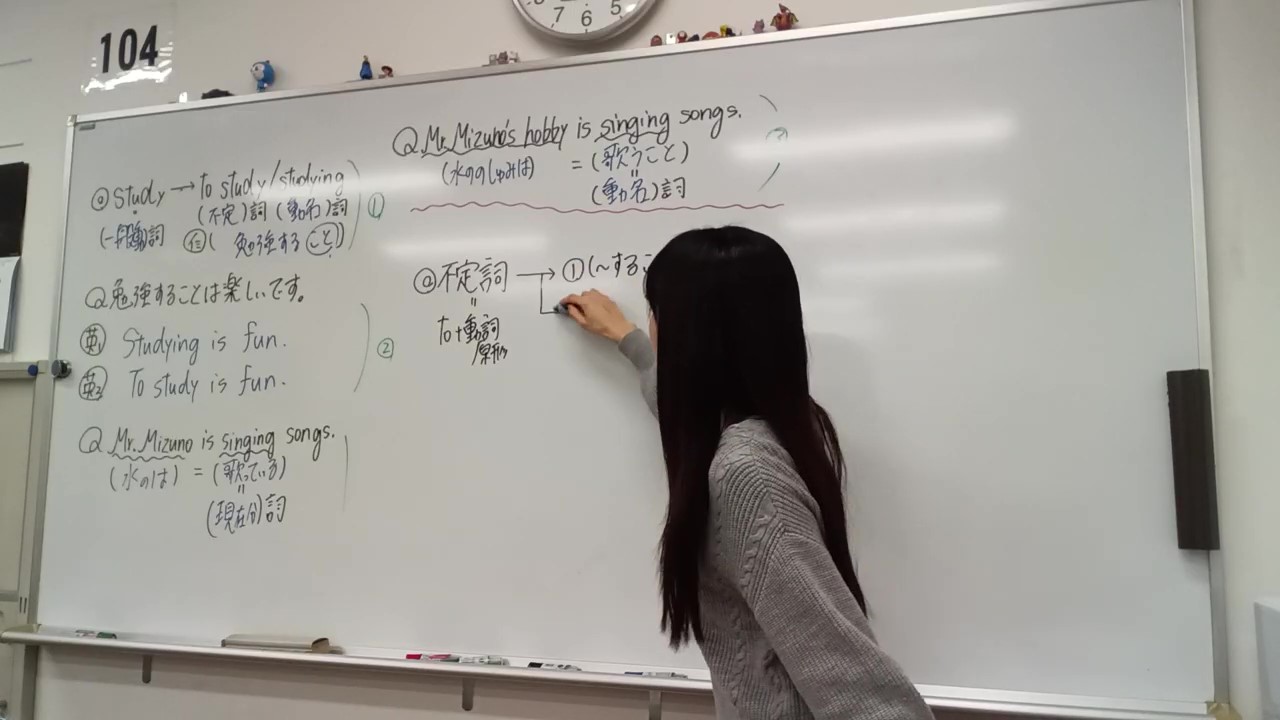 104
7 6 5
@ Study → to study/studying
(不定)詞 (動名)詞 ①
(一般動)詞 (勉強すること)
Q 勉強することは楽しいです。
英1 Studying is fun.
②
英2 To study is fun.
Q Mr. Mizuno is singing songs.
(水のは) = (歌っている)
(現在分)詞
Q. Mr. Mizuno's hobby is singing songs.
(水ののしゅみは) = (歌うこと)
(動名)詞
@不定詞 → ①(~する
to+動詞
原形